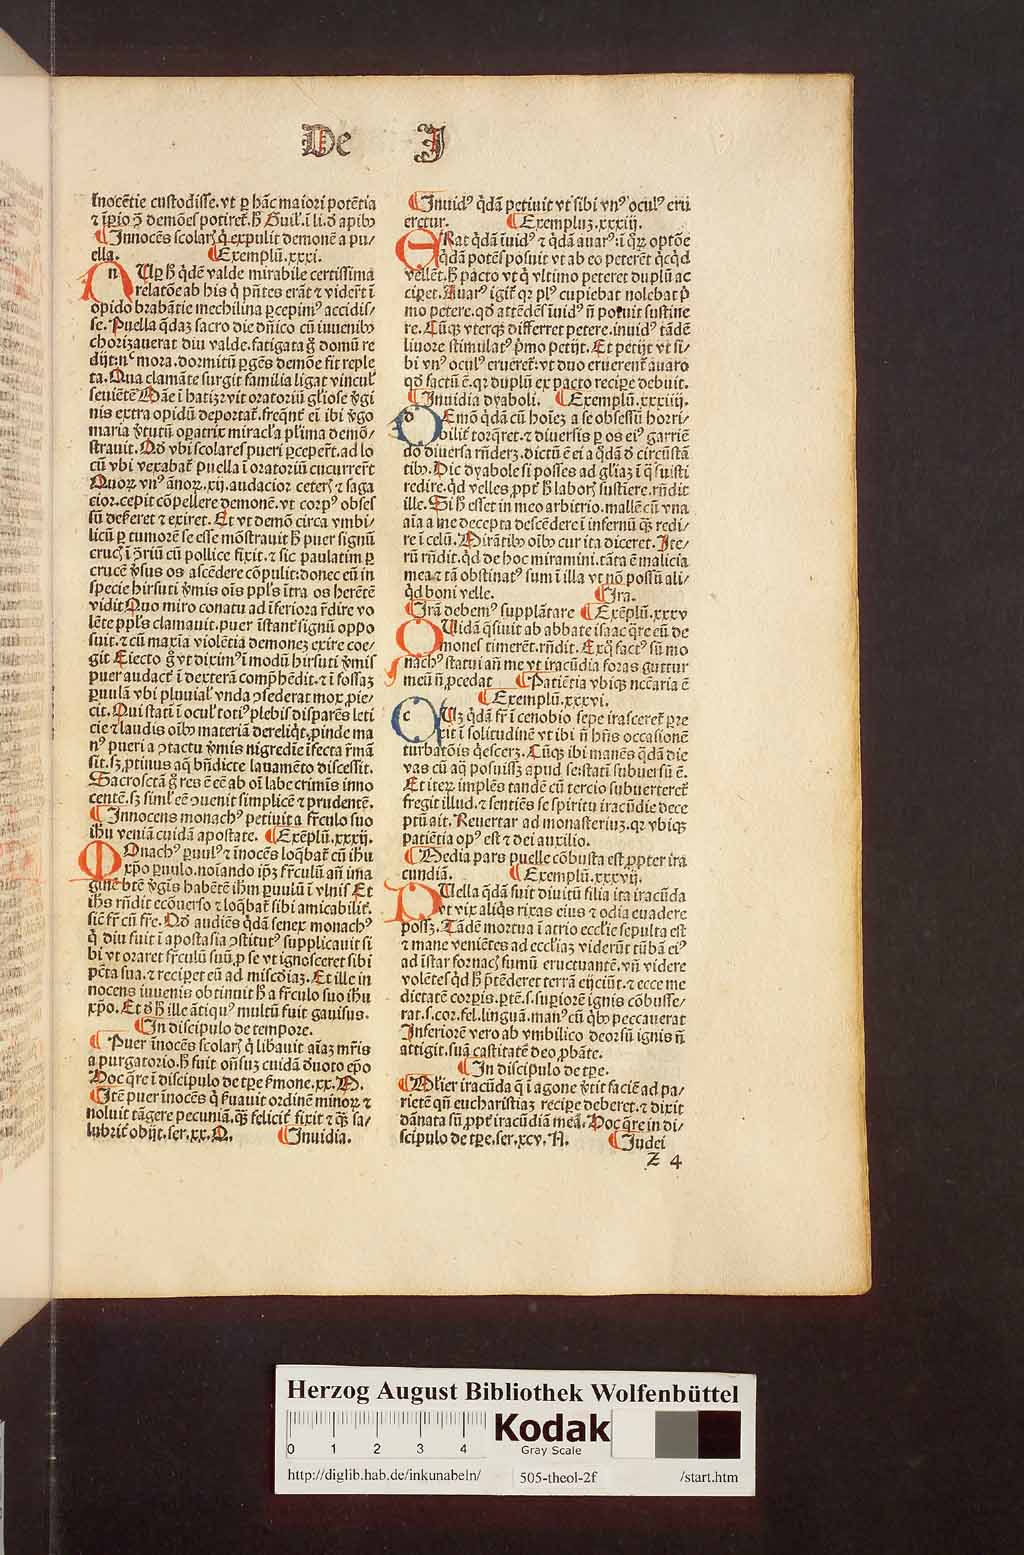 De J
Innocẽtie custodisse. vt ꝑ hãc maiori potẽtia
⁊ ĩꝑio ꝯ̃ demões potiret᷑. ħ Guil᷑. ĩ li. ð apibꝰ
¶ Innocẽs scolarꝭ q̇ expulit demonẽ a pu/
ella. ¶ Exemplũ. xxxi.
relatõe ab his q̇ p̃ñtes erãt ⁊ viderũt ĩ
opido brabãtie mechilina ꝑcepimꝰ accidis/
se. Puella q̃daꝫ sacro die dñico cũ iuuenibꝰ
chorizauerat diu valde. fatigata g̊ domũ re
dijt: nᶜ mora. dormitũ ꝑgẽs demõe fit reple
ta. Qua clamãte surgit familia ligat vincul᷑
nis extra opidũ deportat᷑. freq̃nt᷑ ei ibi ꝟgo
maria ꝟtutũ oꝑatrix miracl̓a pl̓ima demõ/
strauit. Qð vbi scolares pueri ꝑceper̃t. ad lo
cũ vbi vexabat᷑ puella ĩ oratoriũ cucurrer̃t
Quoꝝ vnꝰ ãnoꝝ. xij. audacior ceterꝭ ⁊ saga
cior. cepit cõpellere demonẽ. vt corpꝰ obses
sũ desereret ⁊ exiret. Et vt demõ circa vmbi/
licũ ꝑ tumorẽ se esse mõstrauit ħ puer signũ
crucꝭ ĩ ꝯ̃riũ cũ pollice fixit. ⁊ sic paulatim ꝑ
crucẽ ꝟsus os ascẽdere cõpulit: donec eũ in
specie hirsuti ꝟmis oĩs ppl̓s ĩtra os herẽtẽ
vidit Quo miro conatu ad ĩferiora r̃dire vo
lẽte ppl̓s clamauit. puer ĩstant᷑ signũ oppo
suit. ⁊ cũ maxĩa violẽtia demoneꝫ exire coe/
git Eiecto g̊ vt diximꝰ ĩ modũ hirsuti ꝟmis
puer audact᷑ ĩ dexterã comp̃hẽdit. ⁊ ĩ fossaꝫ
ꝑuulã vbi pluuial᷑ vnda ↄsederat mox ꝓie/
cit. Qui statĩ ĩ ocul᷑ totiꝰ plebis disparẽs leti
cie ⁊ laudis oĩbꝰ materiã dereliq̇t. ꝓinde ma
nꝰ pueri a ↄtactu ꝟmis nigredĩe ĩfecta r̃mã
sit. sꝫ ꝓtinus aq̃ bñdicte lauamẽto discessit.
Sacrosctã g̊ res ẽ eẽ ab oĩ labe crimĩs inno
centẽ. sꝫ simul᷑ eẽ ↄuenit simplicẽ ⁊ prudentẽ.
¶ Innocens monachꝰ petiuit a fr̃culo suo
ihũ veniã cuidã apostate. ¶ Exẽplũ. xxxij.
MOnachꝰ ꝑuulꝰ ⁊ ĩnocẽs loq̃bat᷑ cũ ihũ
xp̃o ꝑuulo. noĩando ip̃ꝫ fr̃culũ añ ima
ginẽ btẽ ꝟgĩs habẽtẽ ihm̃ ꝑuulũ ĩ vlnis Et
ihs̃ rñdit ecõuerso ⁊ loq̃bat᷑ sibi amicabilit᷑.
sicẽ fr̃ cũ fr̃e. Qð audiẽs q̃dã senex monachꝰ
q̇ diu fuit ĩ apostasia ↄstitutꝰ supplicauit si
bi vt oraret fr̃culũ suũ. ꝓ se vt ignosceret sibi
pctã sua. ⁊ reciꝑet eũ ad miscdĩaꝫ. Et ille in
nocens iuuenis obtinuit ħ a fr̃culo suo ihũ
xp̃o. Et ð ħ ille ãtiquꝰ multũ fuit gauisus.
¶ In discipulo de tempore.
¶ Puer ĩnocẽs scolarꝭ q̇ libauit aĩaꝫ mr̃is
a purgatorio. ħ fuit oñsuꝫ cuidã ðuoto ep̃o
Hoc q̃re ĩ discipulo de tꝑe ẜmone. xx. M.
¶ Itẽ puer ĩnocẽs q̇ ẜuauit ordinẽ minoꝝ ⁊
noluit tãgere pecuniã. q̃ꝫ felicit᷑ fixit ⁊ q̃ꝫ sa/
lubrit᷑ obijt. ser. xx. Q. ¶ Inuidia.
¶ Inuidꝰ q̇dã petiuit vt sibi vnꝰ oculꝰ eru
eretur. ¶ Exempluꝫ. xxxiij.
ERat q̇dã ĩuidꝰ ⁊ q̇dã auarꝰ. ĩ q̇ꝝ optõe
q̇dã potẽs posuit vt ab eo peterẽt q̇cq̇d
vellẽt. ħ pacto vt q̇ vltimo peteret duplũ ac
ciꝑet. Auarꝰ igit᷑ qꝛ plꝰ cupiebat nolebat p̃
mo petere. qð attẽdẽs ĩuidꝰ ñ potuit sustine
re. Cũqꝫ vterqꝫ differret petere. inuidꝰ tãdẽ
liuore stimulatꝰ p̃mo petijt. Et petijt vt si/
bi vnꝰ oculꝰ erueret᷑. vt duo eruerent᷑ auaro
qð factũ ẽ. qꝛ duplũ ex pacto reciꝑe debuit.
¶ Inuidia dyaboli. ¶ Exemplũ. xxxiiij.
dEmõ q̇dã cũ hoĩeꝫ a se obsessũ horri/
bilit᷑ torq̃ret. ⁊ diuersis ꝑ os eiꝰ garriẽ
do diuersa rñderꝫ. dictũ ẽ ei a q̇dã ð circũstã
tibꝰ. Dic dyabole si posses ad gl̓iaꝫ ĩ q̃ fuisti
redire. qd̓ velles ꝓpt᷑ ħ laborꝭ sustiere. rñdit
ille. Si ħ esset in meo arbitrio. mallẽ cũ vna
aĩa a me decepta descẽdere ĩ infernũ q̃ꝫ redi/
re ĩ celũ. Mirãtibꝰ oĩbꝰ cur ita diceret. Ite/
rũ rñdit. qd̓ de hoc miramini. tãta ẽ malicia
mea ⁊ tã obstinatꝰ sum ĩ illa vt nõ possũ ali/
qd̓ boni velle. ¶ Ira.
¶ Irã debemꝰ supplãtare ¶ Exẽplũ. xxxv
QUidã q̃siuit ab abbate isaac q̃re eũ de
mones timerẽt. rñdit. Ex q̇ factꝰ sũ mo
nachꝰ statui añ me vt iracũdia foras guttur
meũ ñ ꝓcedat ¶ Patiẽtia vbiqꝫ ncẽaria ẽ
¶ Exemplũ. xxxvi.
cUꝫ q̇dã fr̃ ĩ cenobio sepe irasceret᷑ ꝑre
xit ĩ solitudinẽ vt ibi ñ hñs occasionẽ
turbatõis q̇escerꝫ. Cũqꝫ ibi manẽs q̇dã die
vas cũ aq̃ posuissꝫ apud se: statĩ subuersũ ẽ.
Et iteꝝ implẽs tandẽ cũ tercio subuerteret᷑
fregit illud. ⁊ sentiẽs se spiritu iracũdie dece
ptũ ait. Reuertar ad monasteriuꝫ. qꝛ vbiqꝫ
patiẽtia opꝰ est ⁊ dei auxilio.
¶ Media pars puelle cõbusta est ꝓpter ira
cundiã. ¶ Exemplũ. xxxvij.
PUella q̃dã fuit diuitũ filia ita iracũda
vt vix aliq̇s rixas eius ⁊ odia euadere
possꝫ. Tãdẽ mortua ĩ atrio ecclie sepulta est
⁊ mane veniẽtes ad eccl̓iaꝫ viderũt tũbã eiꝰ
ad ĩstar fornacꝭ fumũ eructuantẽ. vñ videre
volẽtes qd̓ ħ p̃tẽderet terrã eijciũt. ⁊ ecce me
dietatẽ corꝑis. ꝑtẽ. s. suꝑiorẽ ignis cõbusse/
rat. s. cor. fel. linguã. manꝰ cũ q̇bꝰ peccauerat
Inferiorẽ vero ab vmbilico deorsũ ignis ñ
attigit. suã castitatẽ deo ꝓbãte.
¶ In discipulo de tꝑe.
¶ Mĩer iracũda q̃ ĩ agone ꝟtit faciẽ ad pa/
rietẽ qñ eucharistiaꝫ reciꝑe deberet. ⁊ dixit
dãnata sũ ꝓpt᷑ iracũdiã meã. Hoc q̃re in di/
scipulo de tꝑe. ser. xcv. N. ¶ Iudei
Z 4
Herzog August Bibliothek Wolfenbüttel
0 1 2 3 4
Kodak
Gray Scale
http://diglib.hab.de/inkunabeln/ 505-theol-2f /start.htm